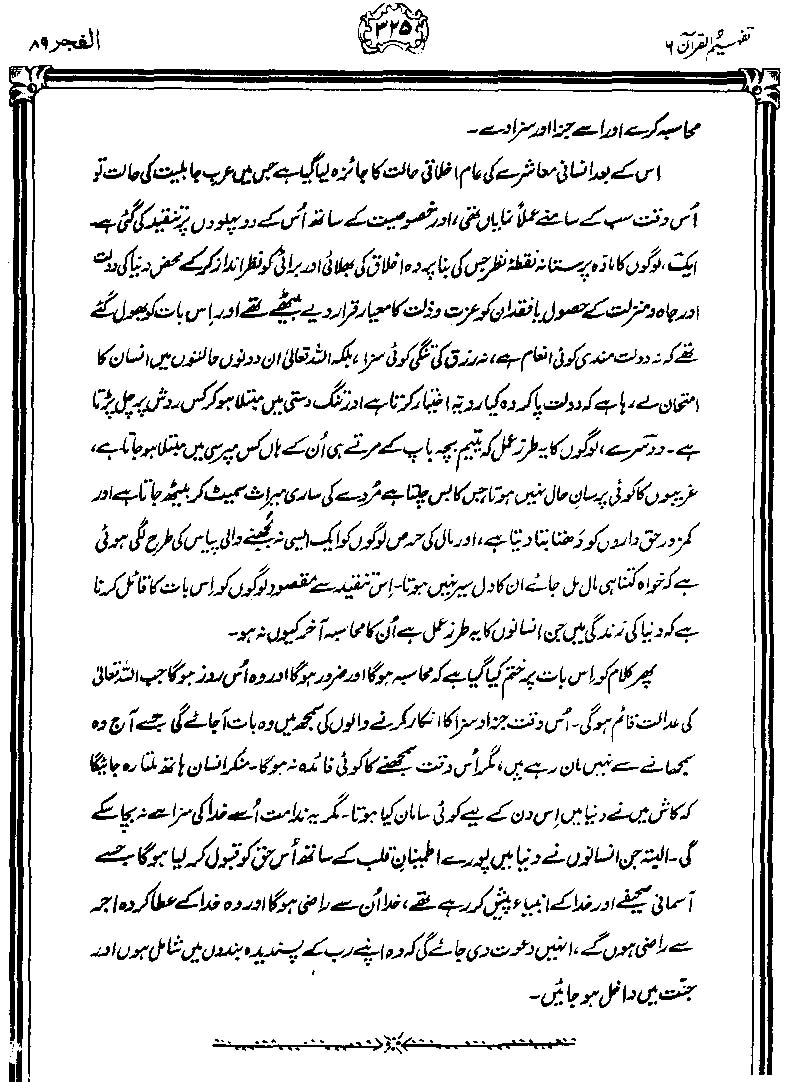 تفہیم القرآن ۶
۳۲۵
الفجر ۸۹
محاسبہ کرے اور اسے جزا اور سزا دے۔
اس کے بعد انسانی معاشرے کی عام اخلاقی حالت کا جائزہ لیا گیا ہے جس میں عرب جاہلیت کی حالت تو
اُس وقت سب کے سامنے عملاً نمایاں تھی، اور خصوصیت کے ساتھ اُس کے دو پہلوؤں پر تنقید کی گئی ہے۔
ایک، لوگوں کا مادہ پرستانہ نقطۂ نظر جس کی بنا پر وہ اخلاق کی بھلائی اور برائی کو نظر انداز کر کے محض دنیا کی دولت
اور جاہ و منزلت کے حصول یا فقدان کو عزت و ذلت کا معیار قرار دیے بیٹھے تھے اور اِس بات کو بھول گئے
تھے کہ نہ دولت مندی کوئی انعام ہے، نہ رزق کی تنگی کوئی سزا، بلکہ اللہ تعالیٰ ان دونوں حالتوں میں انسان کا
امتحان لے رہا ہے کہ دولت پا کر وہ کیا رویہ اختیار کرتا ہے اور تنگ دستی میں مبتلا ہو کر کس روش پر چل پڑتا
ہے۔ دوسرے، لوگوں کا یہ طرز عمل کہ یتیم بچہ باپ کے مرتے ہی اُن کے ہاں کس مپرسی میں مبتلا ہو جاتا ہے،
غریبوں کا کوئی پرسانِ حال نہیں ہوتا جس کا بس چلتا ہے مُردے کی ساری میراث سمیٹ کر بیٹھ جاتا ہے اور
کمزور حق داروں کو دَھتا بتا دیتا ہے، اور مال کی حرص لوگوں کو ایک ایسی نہ بُجھنے والی پیاس کی طرح لگی ہوئی
ہے کہ خواہ کتنا ہی مال مل جائے ان کا دل سیر نہیں ہوتا۔ اِس تنقید سے مقصود لوگوں کو اِس بات کا قائل کرنا
ہے کہ دنیا کی زندگی میں جن انسانوں کا یہ طرز عمل ہے اُن کا محاسبہ آخر کیوں نہ ہو۔
پھر کلام کو اِس بات پر ختم کیا گیا ہے کہ محاسبہ ہوگا اور ضرور ہوگا اور وہ اُس روز ہوگا جب اللہ تعالیٰ
کی عدالت قائم ہوگی۔ اُس وقت جزا و سزا کا انکار کرنے والوں کی سمجھ میں وہ بات آ جائے گی جسے آج وہ
سمجھانے سے نہیں مان رہے ہیں، مگر اُس وقت سمجھنے کا کوئی فائدہ نہ ہوگا۔ منکر انسان ہاتھ ملتا رہ جائیگا
کہ کاش میں نے دنیا میں اِس دن کے لیے کوئی سامان کیا ہوتا۔ مگر یہ ندامت اُسے خدا کی سزا سے نہ بچا سکے
گی۔ البتہ جن انسانوں نے دنیا میں پورے اطمینانِ قلب کے ساتھ اُس حق کو قبول کر لیا ہوگا جسے
آسمانی صحیفے اور خدا کے انبیاء پیش کر رہے تھے، خدا اُن سے راضی ہوگا اور وہ خدا کے عطا کردہ اجر
سے راضی ہوں گے، انہیں دعوت دی جائے گی کہ وہ اپنے رب کے پسندیدہ بندوں میں شامل ہوں اور
جنت میں داخل ہو جائیں۔